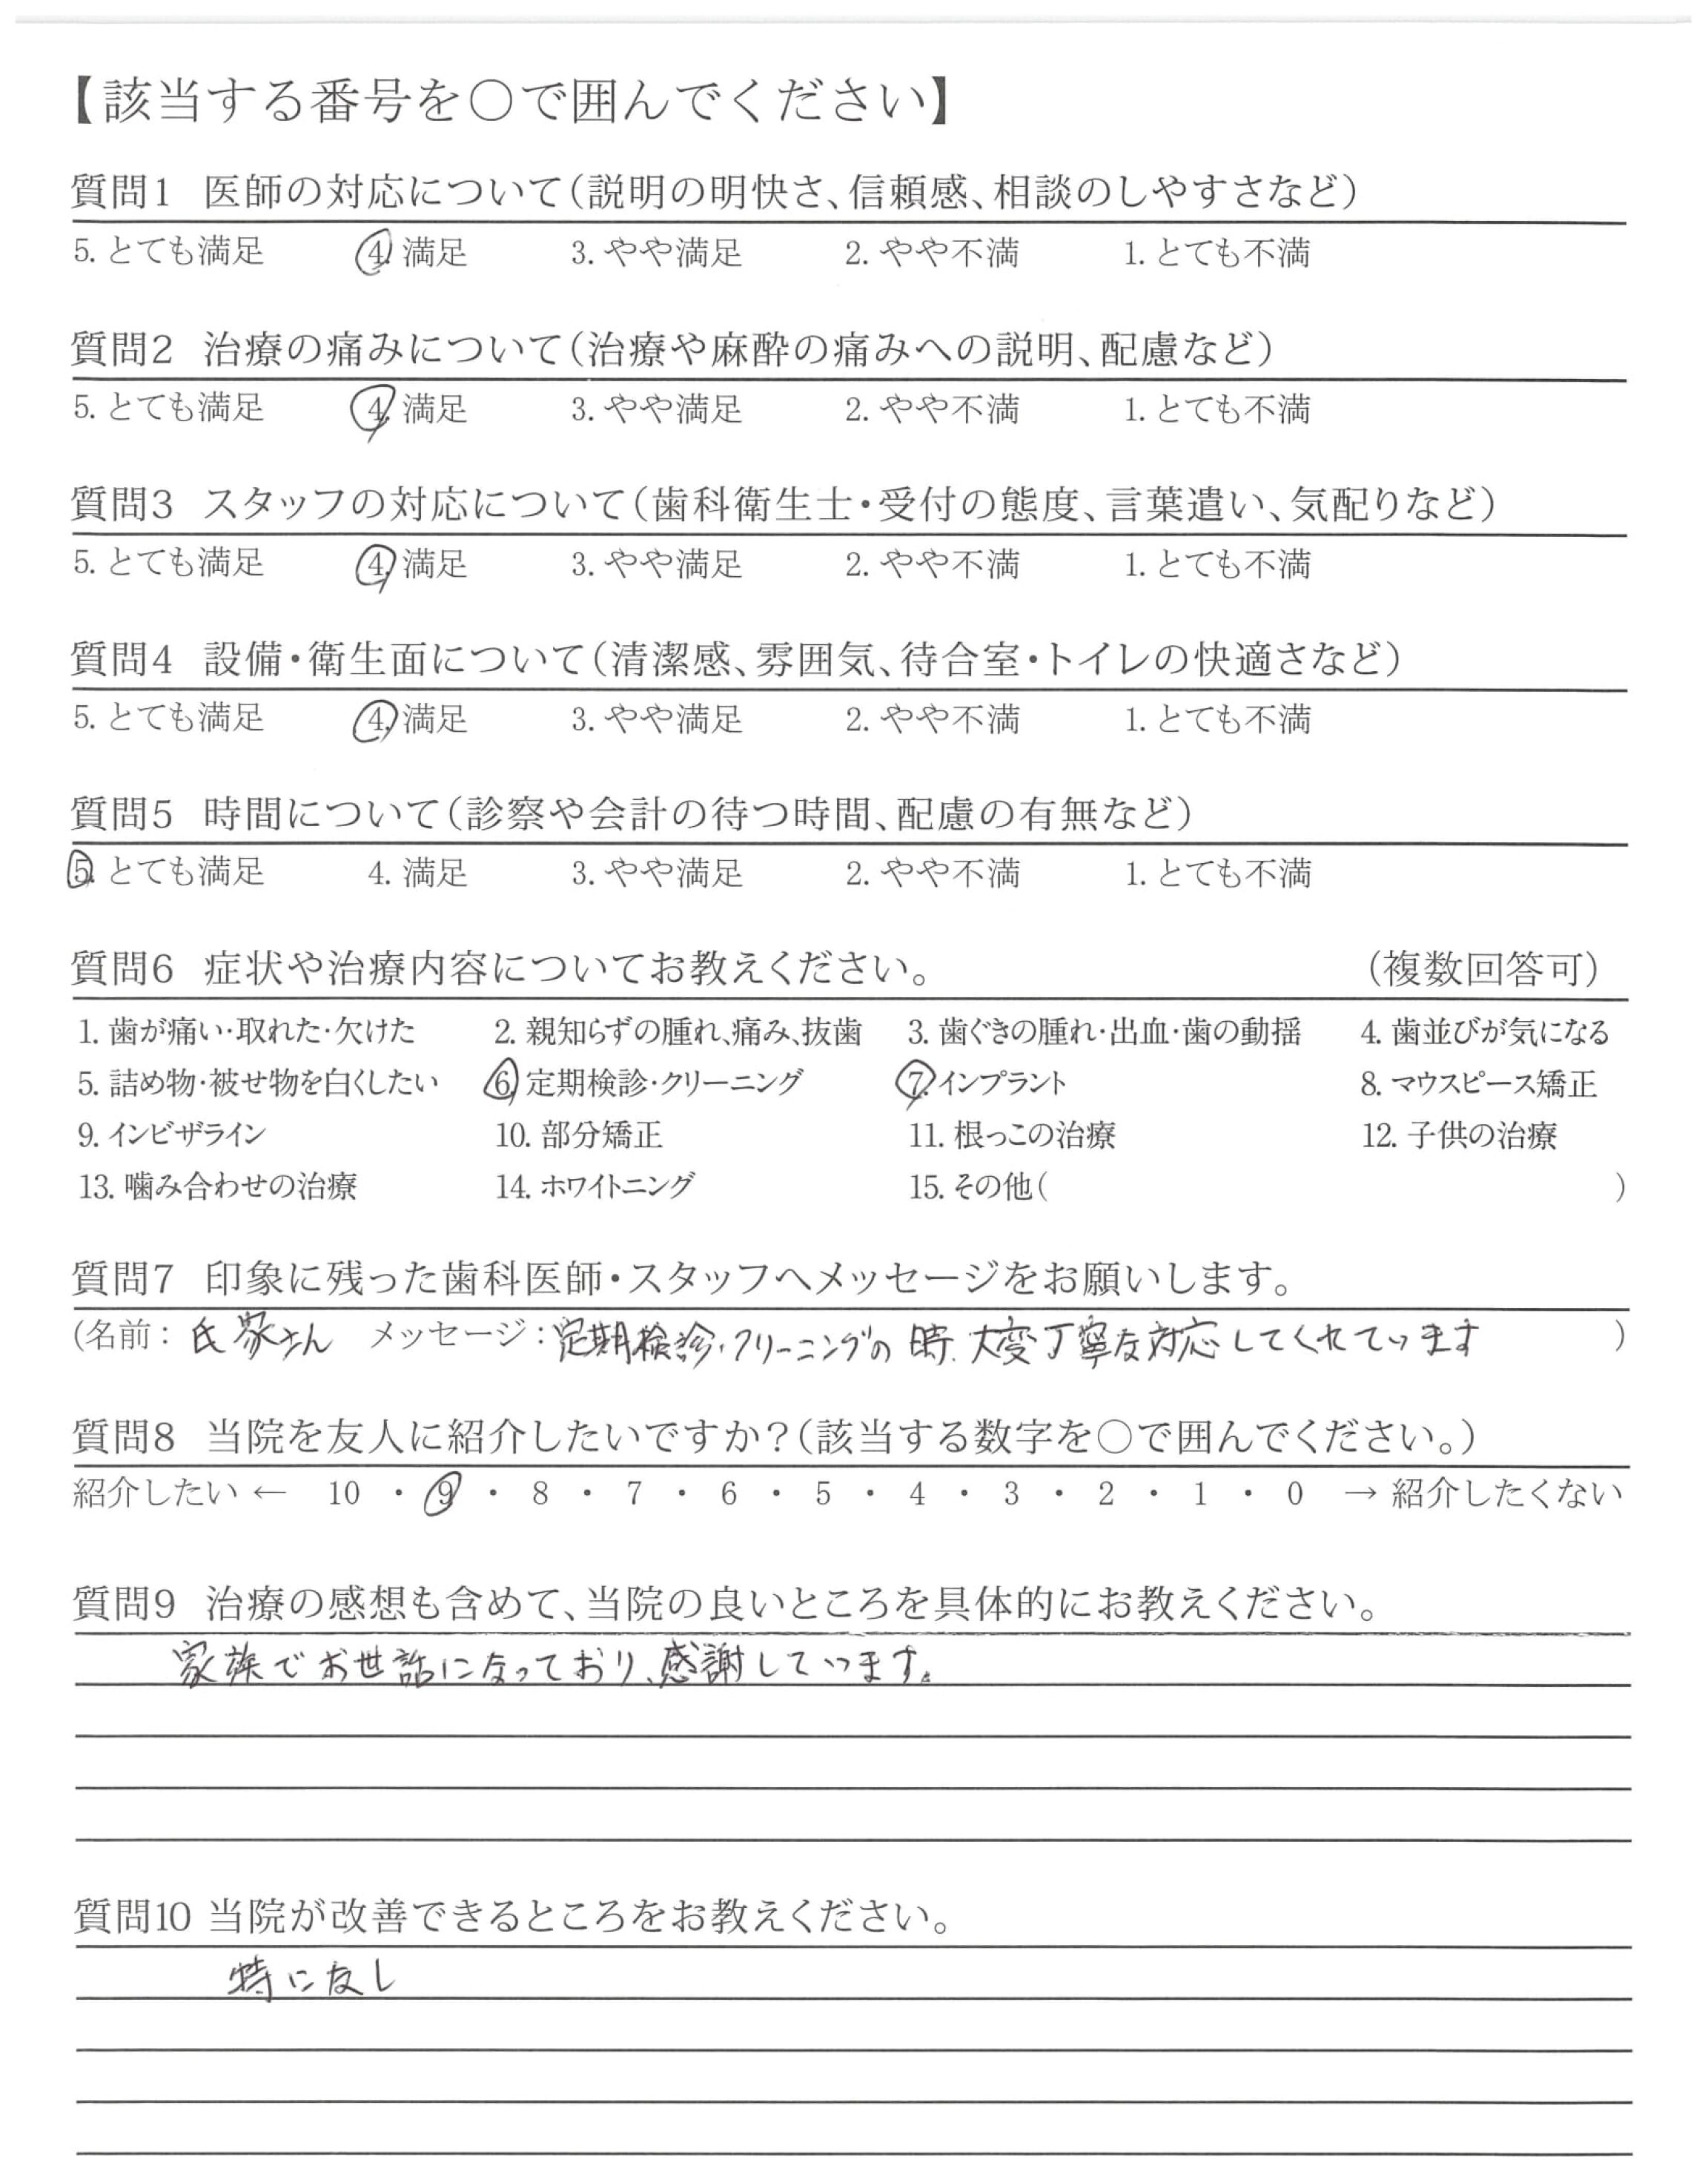 【該当する番号を〇で囲んでください】
質問1 医師の対応について(説明の明快さ、信頼感、相談のしやすさなど)
5. とても満足 4. 満足 3. やや満足 2. やや不満 1. とても不満
質問2 治療の痛みについて(治療や麻酔の痛みへの説明、配慮など)
5. とても満足 4. 満足 3. やや満足 2. やや不満 1. とても不満
質問3 スタッフの対応について(歯科衛生士・受付の態度、言葉遣い、気配りなど)
5. とても満足 4. 満足 3. やや満足 2. やや不満 1. とても不満
質問4 設備・衛生面について(清潔感、雰囲気、待合室・トイレの快適さなど)
5. とても満足 4. 満足 3. やや満足 2. やや不満 1. とても不満
質問5 時間について(診察や会計の待つ時間、配慮の有無など)
5. とても満足 4. 満足 3. やや満足 2. やや不満 1. とても不満
質問6 症状や治療内容についてお教えください。 (複数回答可)
1. 歯が痛い・取れた・欠けた 2. 親知らずの腫れ、痛み、抜歯 3. 歯ぐきの腫れ・出血・歯の動揺 4. 歯並びが気になる
5. 詰め物・被せ物を白くしたい 6. 定期検診・クリーニング 7. インプラント 8. マウスピース矯正
9. インビザライン 10. 部分矯正 11. 根っこの治療 12. 子供の治療
13. 噛み合わせの治療 14. ホワイトニング 15. その他( )
質問7 印象に残った歯科医師・スタッフへメッセージをお願いします。
(名前: 氏家さん メッセージ: 定期検診・クリーニングの時、大変丁寧な対応してくれています )
質問8 当院を友人に紹介したいですか?(該当する数字を〇で囲んでください。)
紹介したい ← 10 ・ 9 ・ 8 ・ 7 ・ 6 ・ 5 ・ 4 ・ 3 ・ 2 ・ 1 ・ 0 → 紹介したくない
質問9 治療の感想も含めて、当院の良いところを具体的にお教えください。
家族でお世話になっており、感謝しています。
質問10 当院が改善できるところをお教えください。
特になし